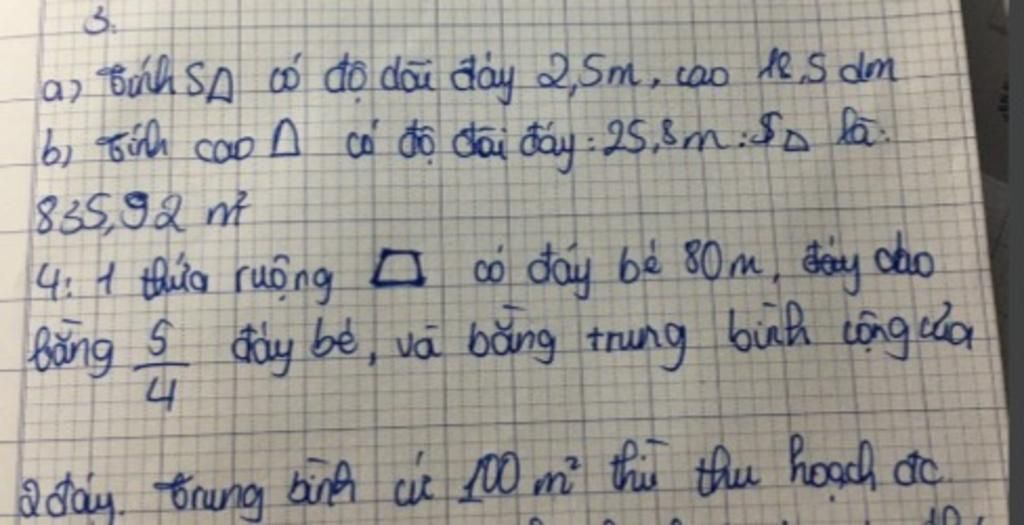 3.
a) tính S△ có độ dài đáy 2,5m, cao 12,5 dm
b) tính cao △ có độ dài đáy: 25,8m: S△ là:
835,92 m²
4: 1 thửa ruộng có đáy bé 80m, đáy
bằng 5/4 đáy bé, và bằng trung bình cộng của
2 đáy. trung bình cứ 100 m² thì thu hoạch đc